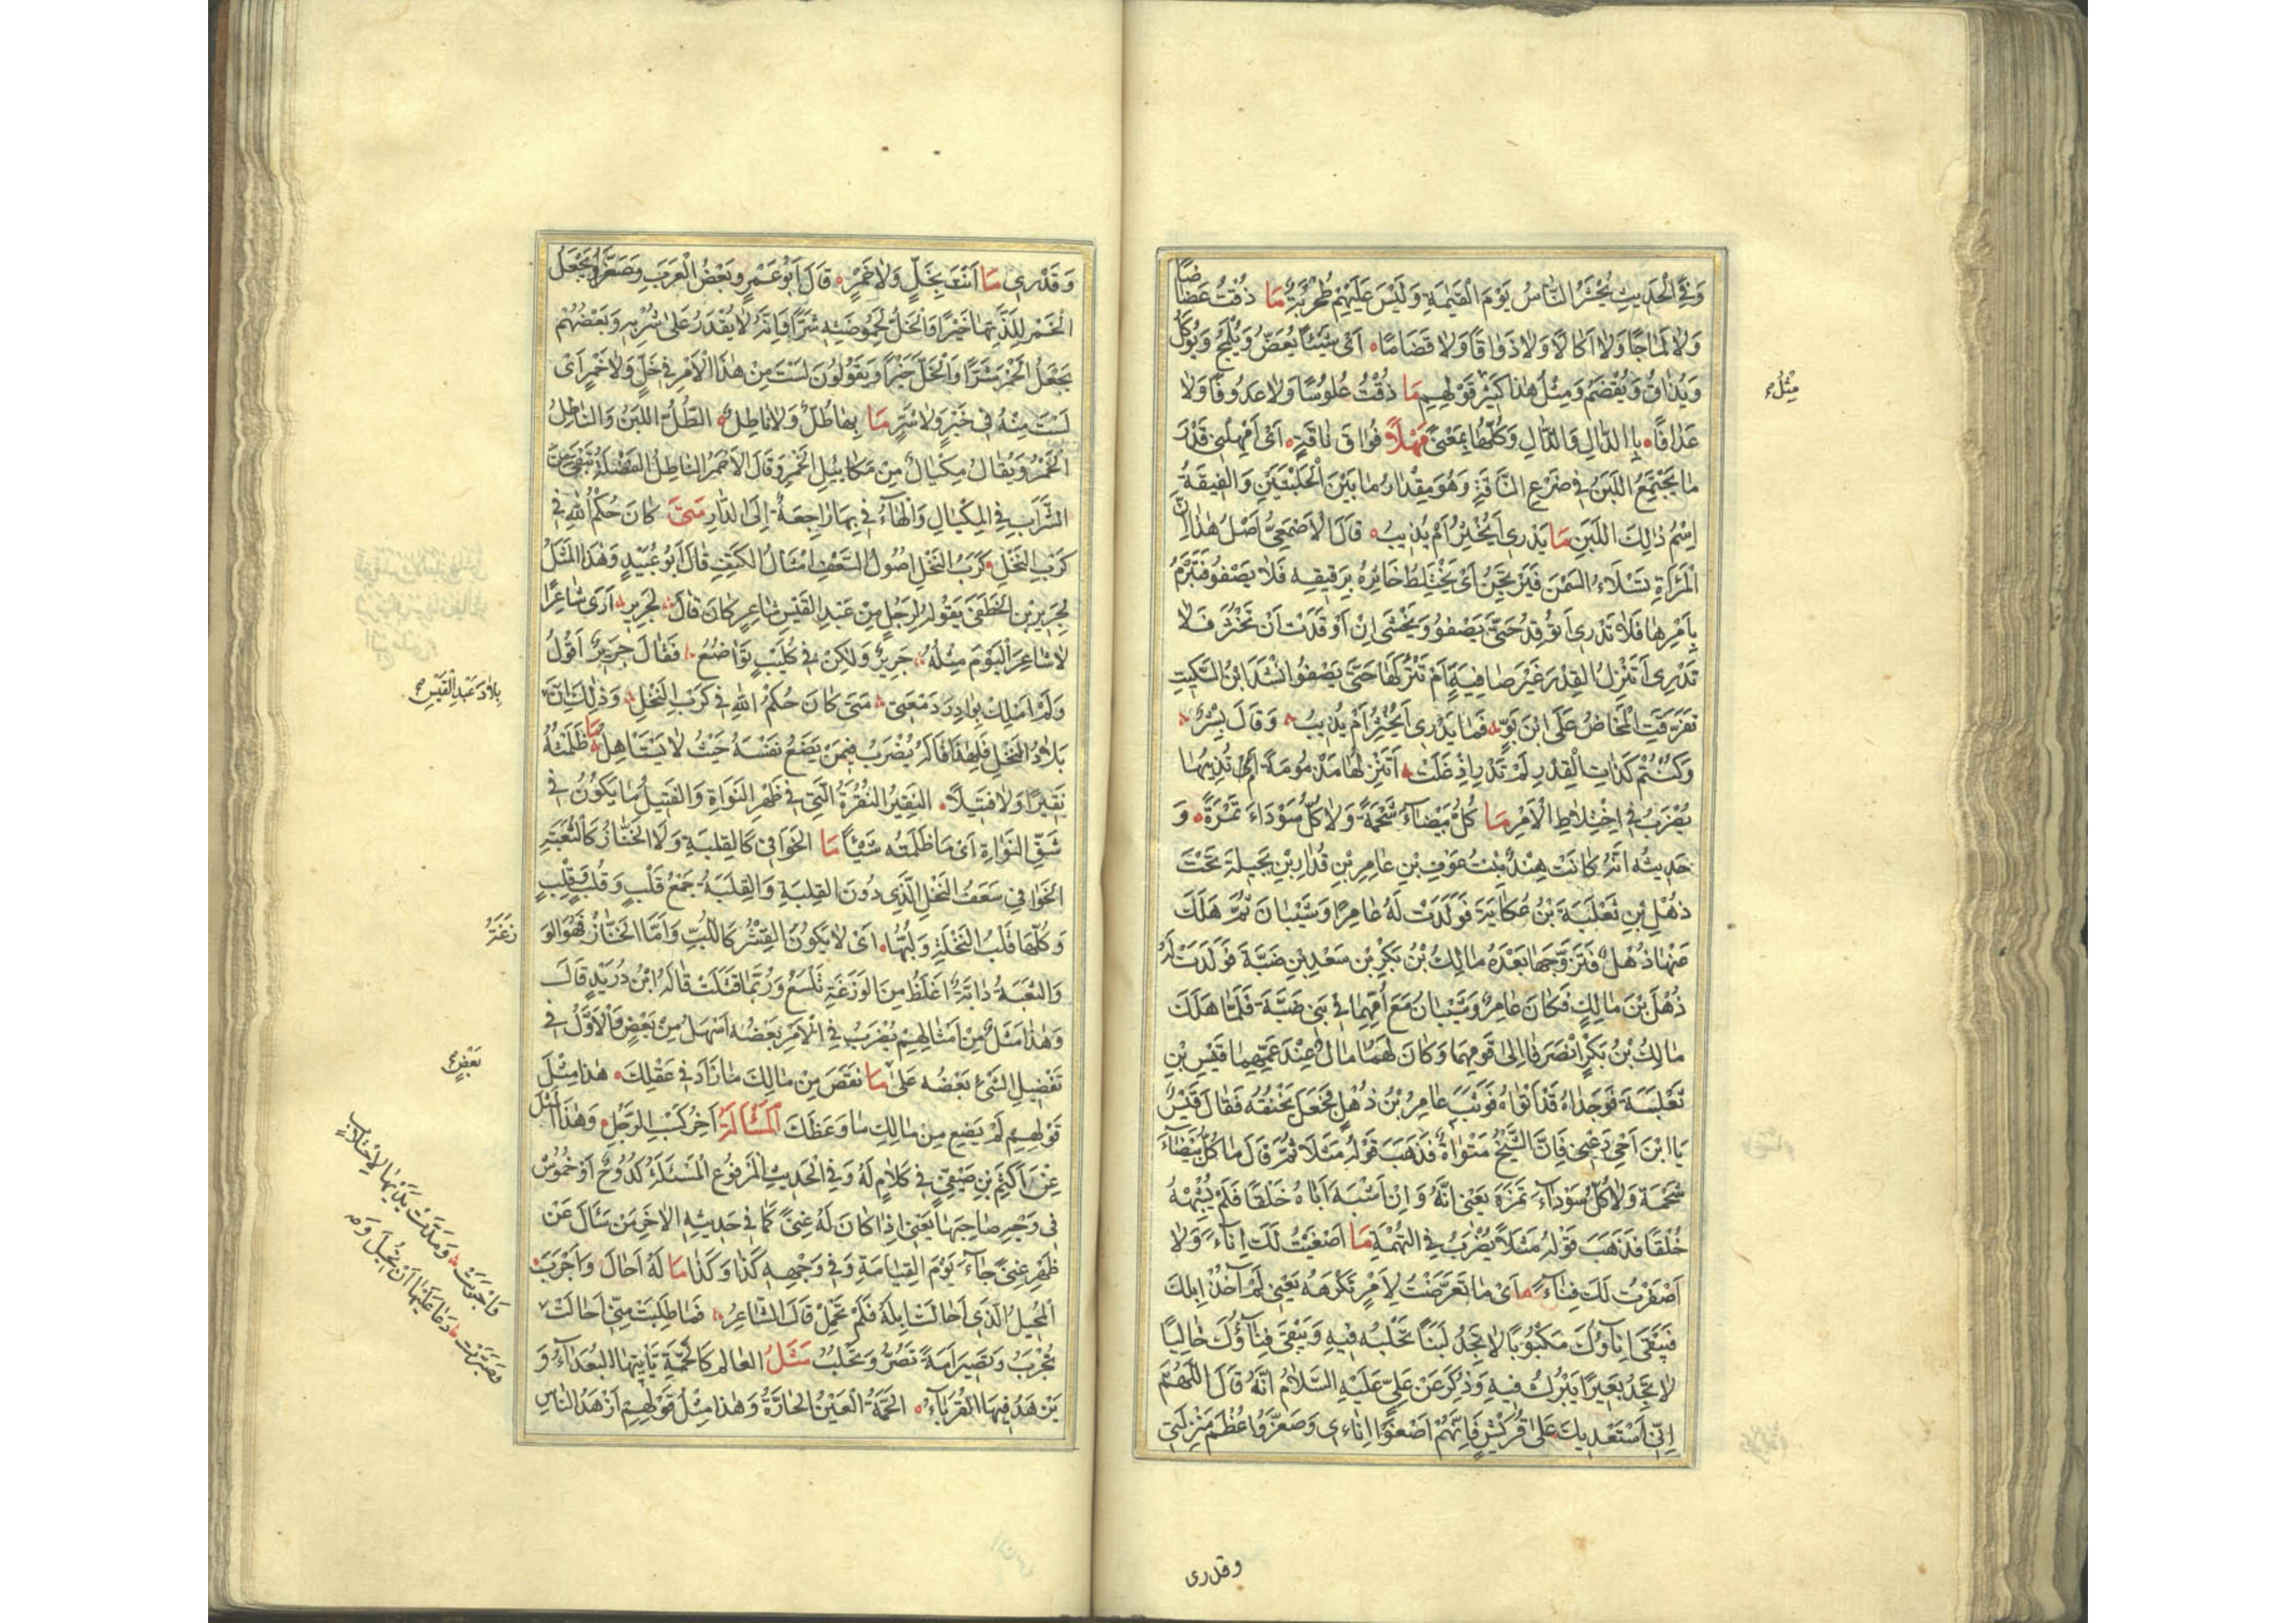 وَفِي الْحَدِيثِ يُحْشَرُ النَّاسُ يَوْمَ الْقِيٰمَةِ وَلَيْسَ عَلَيْهِمْ طُحْرُبَةٌ مَا ذُقْتُ عَضَاضًا
وَلَا لَمَاجًا وَلَا اَكَالًا وَلَا ذَوَاقًا وَلَا قَضَامًا اَىْ شَيْئًا يُعَضُّ وَيُلْمَجُ وَيُؤكَلُ
وَيُذَاقُ وَيُقْضَمُ وَمِثْلُ هٰذَا كَثِيْرٌ قَوْلِهِمِ مَا ذُقْتُ عَلُوسًا وَلَا عَدُوفًا وَلَا
مِثْلُ
عَذَافًا بِالدَّالِ وَالذَّالِ وَكُلّهَا بِمَعْنًى مَهْلًا فُوَاقَ نَاقَةٍ اَىْ اَمْهِلْنِى قَدْرَ
مَا يَجْتَمِعُ اللَّبَنُ فِى ضَرْعِ النَّاقَةِ وَهُوَ مِقْدَارُ مَا بَيْنَ الْحَلْبَتَيْنِ وَالْفِيقَةُ
اِسْمُ ذٰلِكَ اللَّبَنِ مَا يَدْرِى اَيُخْثِرُ اَمْ يُذِيبُ قَالَ الْاَصْمَعِىُّ اَصْلُ هٰذَا اَنَّ
الْمَرْاَةَ تَسْلَاءُ السَّمْنَ فَيَرْتَجِنُ اَىْ يَخْتَلِطُ خَاثِرُهُ بِرَقِيقِهِ فَلَا يَصْفُو فَتَبْرَمُ
بِاَمْرِهَا فَلَا تَدْرِى اَتُوقِدُ حَتّٰى يَصْفُوَ وَيَخْشٰى اِنْ اَوْقَدَتْ اَنْ تَخْثُرَ فَلَا
تَدْرِى اَتُنْزِلُ الْقِدْرَ غَيْرَ صَافِيَةٍ اَمْ تَتْرُكُهَا حَتّٰى يَصْفُوَ اَنْشَدَ ابْنُ السِّكِّيتِ
تَفَرَّقَتِ الْمَخَاضُ عَلَى ابْنِ بَوٍّ فَمَا يَدْرِى اَيُخْثِرُ اَمْ يُذِيبُ وَقَالَ بِشْرٌ
وَكُنْتُمْ كَذَاتِ الْقِدْرِ لَمْ تَدْرِ اِذْ غَلَتْ اَتُنْزِلُهَا مَذْمُومَةً اَمْ تُذِيبُهَا
يُضْرَبُ فِى اِخْتِلَاطِ الْاَمْرِ مَا كُلُّ بَيْضَاءَ شَحْمَةً وَلَا كُلُّ سَوْدَاءَ تَمْرَةً وَ
حَدِيثُهُ اَنَّهُ كَانَتْ هِنْدٌ بِنْتُ عَوْفِ بْنِ عَامِرِ بْنِ قُدَارِ بْنِ بَجِيلَةَ تَحْتَ
ذُهْلِ بْنِ ثَعْلَبَةَ بْنِ عُكَابَةَ فَوَلَدَتْ لَهُ عَامِرًا وَشَيْبَانَ ثُمَّ هَلَكَ
عَنْهَا ذُهْلٌ فَتَزَوَّجَهَا بَعْدَهُ مَالِكُ بْنُ بَكْرِ بْنِ سَعْدِ بْنِ ضَبَّةَ فَوَلَدَتْ لَهُ
ذُهْلَ بْنَ مَالِكٍ فَكَانَ عَامِرٌ وَشَيْبَانُ مَعَ اُمِّهِمَا فِى بَنِى ضَبَّةَ فَلَمَّا هَلَكَ
مَالِكُ بْنُ بَكْرٍ اِنْصَرَفَا اِلٰى قَوْمِهِمَا وَكَانَ لَهُمَا مَالٌ عِنْدَ عَمِّهِمَا قَيْسِ بْنِ
ثَعْلَبَةَ فَوَجَدَاهُ قَدْ اَتْوَاهُ فَوَثَبَ عَامِرُ بْنُ ذُهْلٍ فَجَعَلَ يَخْنُقُهُ فَقَالَ قَيْسٌ
يَا ابْنَ اَخِى دَعْنِى فَاِنَّ الشَّيْخَ مَتْوَاةٌ فَذَهَبَ قَوْلُهُ مَثَلًا ثُمَّ قَالَ مَا كُلُّ بَيْضَاءَ
شَحْمَةً وَلَا كُلُّ سَوْدَاءَ تَمْرَةً يَعْنِى اَنَّهُ وَاِنْ اَشْبَهَ اَبَاهُ خَلْقًا فَلَمْ يُشْبِهْهُ
خُلْقًا فَذَهَبَ قَوْلُهُ مَثَلًا يُضْرَبُ فِى التُّهْمَةِ مَا اَصْغَيْتُ لَكَ اِنَاءً وَلَا
اَصْفَرْتُ لَكَ فِنَاءً اَىْ مَا تَعَرَّضْتُ لِاَمْرٍ تَكْرَهُهُ يَعْنِى لَمْ آخُذْ اِبِلَكَ
فَيَبْقٰى اِنَاؤُكَ مَكْبُوبًا لَا تَجِدُ لَبَنًا تَحْلُبُهُ فِيهِ وَيَبْقٰى فِنَاؤُكَ خَالِيًا
لَا تَجِدُ بَعِيرًا يَبْرُكُ فِيهِ وَذُكِرَ عَنْ عَلِىٍّ عَلَيْهِ السَّلَامُ اَنَّهُ قَالَ اللّٰهُمَّ
اِنِّى اَسْتَعْدِيكَ عَلٰى قُرَيْشٍ فَاِنَّهُمْ اَصْغَوْا اِنَاءِى وَصَغَّرُوا عُظْمَ مَنْزِلَتِى
وقدرى
وَقَدْرِى مَا اَنْتَ بِخَلٍّ وَلَا خَمْرٍ قَالَ اَبُو عَمْرٍو بَعْضُ الْعَرَبِ يَجْعَلُ
الْخَمْرَ لِلَذَّتِهَا خَيْرًا وَالْخَلَّ لِحُمُوضَتِهِ شَرًّا وَاَنَّهُ لَا يُقْدَرُ عَلٰى شُرْبِهِ وَبَعْضُهُمْ
يَجْعَلُ الْخَمْرَ شَرًّا وَالْخَلَّ خَيْرًا وَيَقُولُونَ لَسْتَ مِنْ هٰذَا الْاَمْرِ فِى خَلٍّ وَلَا خَمْرٍ اَىْ
لَسْتَ مِنْهُ فِى خَيْرٍ وَلَا شَرٍّ مَا بِهَا طُلٌّ وَلَا نَاطِلٌ الطُّلُّ اللَّبَنُ وَالنَّاطِلُ
الْخَمْرُ وَيُقَالُ مِكْيَالٌ مِنْ مَكَايِيلِ الْخَمْرِ وَقَالَ الْاَحْمَرُ النَّاطِلُ الْفَضْلَةُ تَبْقٰى مِنَ
الشَّرَابِ فِى الْمِكْيَالِ وَالْهَاءُ فِى بِهَا رَاجِعَةٌ اِلَى الدَّارِ مَتٰى كَانَ حُكْمُ اللّٰهِ فِى
كَرَبِ النَّخْلِ كَرَبُ النَّخْلِ اُصُولُ السَّعَفِ اَمْثَالُ الْكَتِفِ قَالَ اَبُو عُبَيْدٍ وَهٰذَا الْمَثَلُ
لِجَرِيرِ بْنِ الْخَطَفٰى يَقُولُ لِرَجُلٍ مِنْ عَبْدِ الْقَيْسِ شَاعِرٍ كَانَ قَالَ لِجَرِيرٍ اَرَى شَاعِرًا
لَا شَاعِرَ الْيَوْمَ مِثْلُهُ جَرِيرٌ وَلٰكِنْ فِى كُلَيْبٍ تَوَاضُعُ فَقَالَ جَرِيرٌ اَقُولُ
وَلَمْ اَمْلِكْ بَوَادِرَ دَمْعَتِى مَتٰى كَانَ حُكْمُ اللّٰهِ فِى كَرَبِ النَّخْلِ وَذٰلِكَ اَنَّ
بِلَادَ عَبْدِ الْقَيْسِ
بِلَادُ النَّخْلِ فَلِهٰذَا قَالَهُ يُضْرَبُ فِيمَنْ يَضَعُ نَفْسَهُ حَيْثُ لَا يَسْتَاهِلُ مَا ظَلَمْتُهُ
نَقِيرًا وَلَا فَتِيلًا النَّقِيرُ النُّقْرَةُ الَّتِى فِى ظَهْرِ النَّوَاةِ وَالْفَتِيلُ مَا يَكُونُ فِى
شَقِّ النَّوَاةِ اَىْ مَا ظَلَمْتُهُ شَيْئًا مَا الْخَوَافِى كَالْقِلَبَةِ وَلَا الْخُنَّازُ كَالثُّعْبَةِ
الْخَوَافِى سَعَفُ النَّخْلِ الَّذِى دُونَ الْقِلَبَةِ وَالْقِلَبَةُ جَمْعُ قَلْبٍ وَقُلْبٍ وَقِلْبٍ
وَكُلّهَا قَلْبُ النَّخْلَةِ وَلُبُّهَا اَىْ لَا يَكُونُ الْقِشْرُ كَاللُّبِّ وَاَمَّا الْخُنَّازُ فَهُوَ الْوَ
زَغَةُ
وَالثُّعَبَةُ دَابَّةٌ اَغْلَظُ مِنَ الْوَزَغَةِ تَلْسَعُ وَرُبَّمَا قَتَلَتْ قَالَهُ ابْنُ دُرَيْدٍ قَالَ
وَهٰذَا مَثَلٌ مِنْ اَمْثَالِهِمْ يُضْرَبُ فِى الْاَمْرِ بَعْضُهُ اَسْهَلُ مِنْ بَعْضٍ وَالْاَوَّلُ فِى
تَفْضِيلِ الشَّىْءِ بَعْضُهُ عَلٰى مَا نَقَصَ مِنْ مَالِكَ مَا زَادَ فِى عَقْلِكَ هٰذَا مِثْلُ
بَعْضٍ
قَوْلِهِمْ لَمْ يَضِعْ مِنْ مَالِكَ مَا وَعَظَكَ اَلْمَسْاَلَةُ اٰخِرُ كَسْبِ الرَّجُلِ وَهٰذَا الْمَثَلُ
عَنْ اَكْثَمَ بْنِ صَيْفِىٍّ فِى كَلَامٍ لَهُ وَفِى الْحَدِيثِ الْمَرْفُوعِ الْمَسْئَلَةُ كُدُوحٌ اَوْ خُمُوشٌ
فِى وَجْهِ صَاحِبِهَا يَعْنِى اِذَا كَانَ لَهُ غِنًى كَمَا فِى حَدِيثِهِ الْاٰخَرِ مَنْ سَئَالَ عَنْ
ظَهْرِ غِنًى جَاءَ يَوْمَ الْقِيَامَةِ وَفِى وَجْهِهِ كَذَا وَكَذَا مَا لَهُ اَحَالَ وَاَجْرَبَ
اَلْمُحِيلُ الَّذِى اَحَالَتْ اِبِلُهُ فَلَمْ تَحْمِلْ قَالَ الشَّاعِرُ فَمَا طَلِبَتْ مِنِّى اَحَالَتْ
وَاَجْرَبَتْ وَمَدَّتْ يَدَيْهَا لِاحْتِلَابٍ
وَصَرَّتْ دَعَا عَلَيْهَا اَنْ تُحِيلَ وَ
تُجْرِبَ وَتَصِيرَ اَمَةً تَصُرُّ وَتَحْلُبُ مَثَلُ الْعَالِمِ كَالْحَمَّةِ يَأْتِيهَا الْبُعَدَاءُ وَ
يَزْهَدُ فِيهَا الْقُرَبَاءُ الْحَمَّةُ الْعَيْنُ الْحَارَّةُ وَهٰذَا مِثْلُ قَوْلِهِمْ اَزْهَدُ النَّاسِ